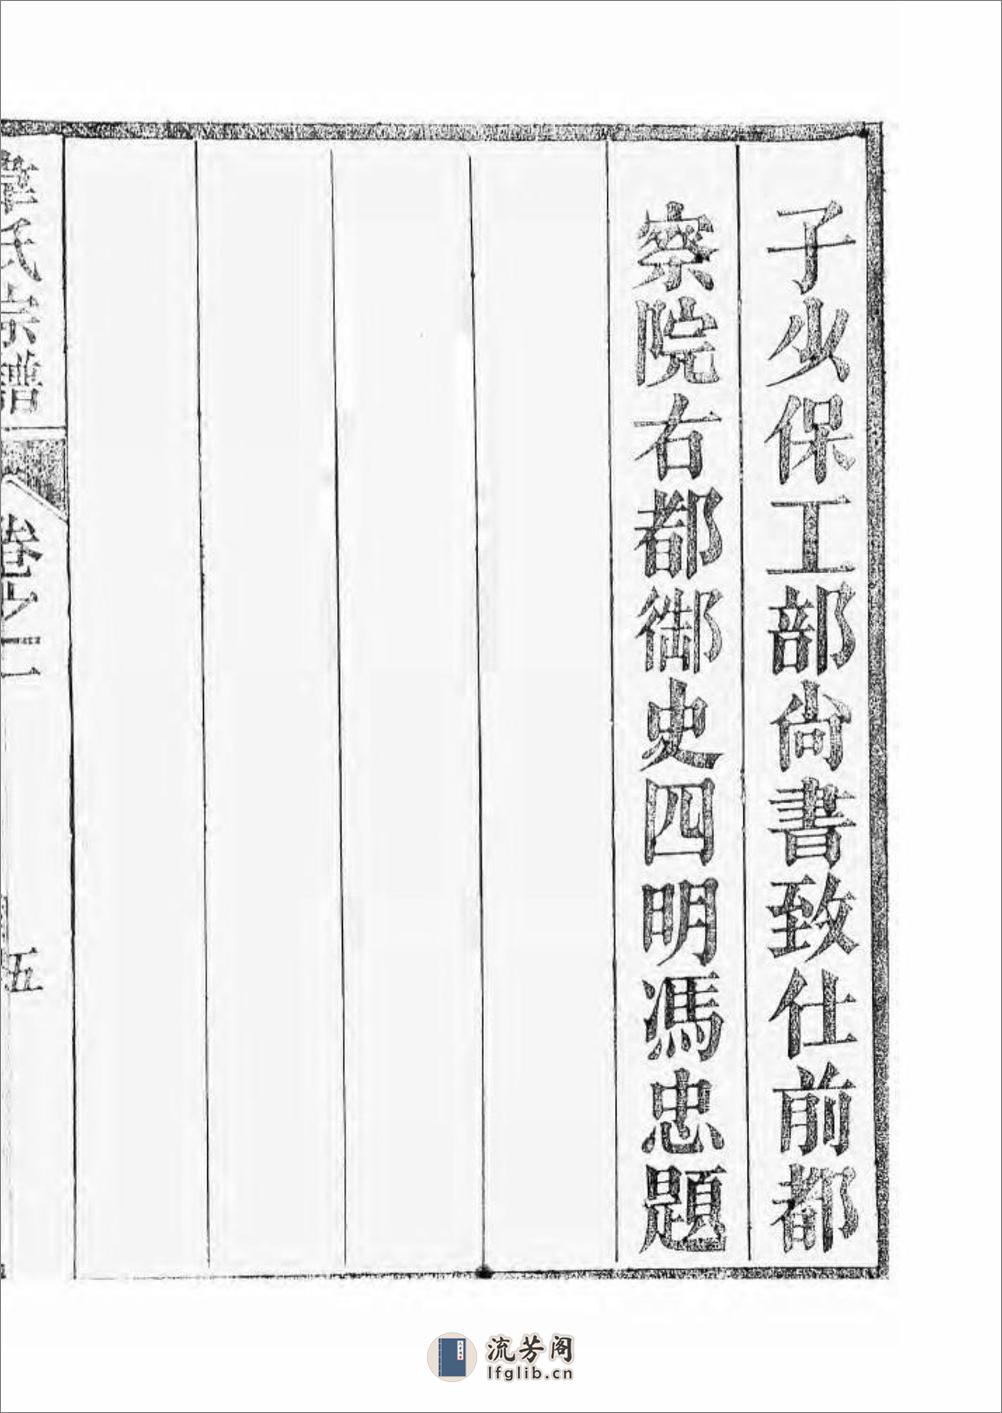 子少保工部尙書致仕前都
察院右都御史四明馮忠題
氏宗譜
卷之一
五
流芳阁
lfglib.cn